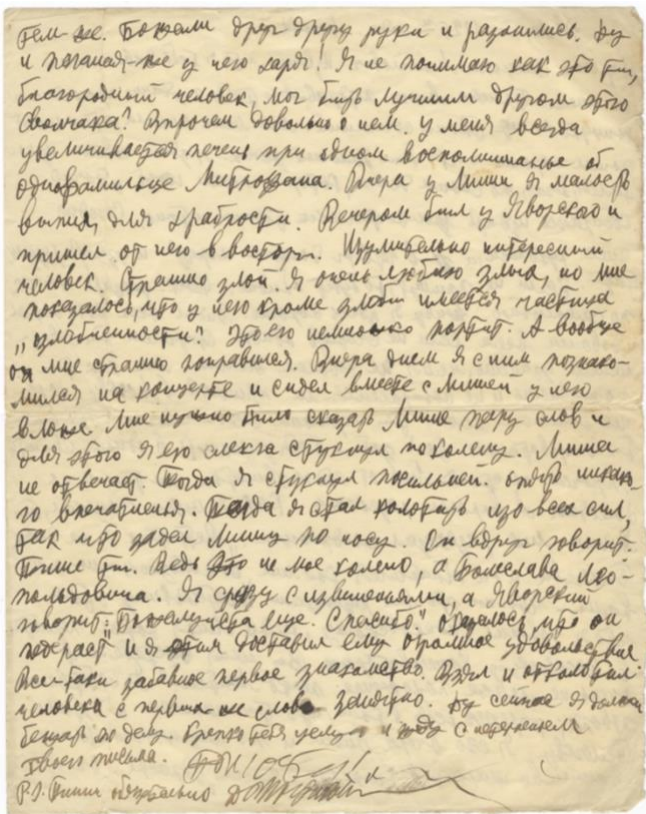 тем-же. Пожали друг другу руки и разошлись. Ну
и поганая-же у него харя! Я не понимаю как это ты,
благородный человек, мог быть лучшим другом этого
сволчака? Впрочем довольно о нем. У меня всегда
увеличивается печень при одном воспоминанье об
однофамильце Миткована. Вчера у Миши я малость
выпил, для храбрости. Вечером был у Яворского и
пришел от него в восторг. Изумительно интересный
человек. Страшно злой. Я очень люблю злых, но мне
показалось, что у него кроме злобы имеется частица
„озлобленности". Это его немножко портит. А вообще
он мне страшно понравился. Вчера днем я с ним познако-
мился на концерте и сидел вместе с Мишей у него
в ложе. Мне нужно было сказать Мише пару слов и
для этого я его слегка стукнул по колену. Миша
не отвечает. Тогда я стукнул посильней. опять никако-
го впечатленья. Тогда я стал колотить изо всех сил,
так что задел Мишу по носу. Он вдруг говорит:
Тише ты. Ведь это не мое колено, а Болеслава Лео-
польдовича. Я сразу с извинениями, а Яворский
говорит: „Пожалуйста еще. Спасибо." оказалось, что он
и я этим доставил ему огромное удовольствие
Все-таки забавное первое знакомство. Взял и отколотил
человека с первых-же слов Ну сейчас я должен
бежать по делу. Крепко тебя целую и жду с нетерпением
твоего письма.
P.S. Пиши обязательно